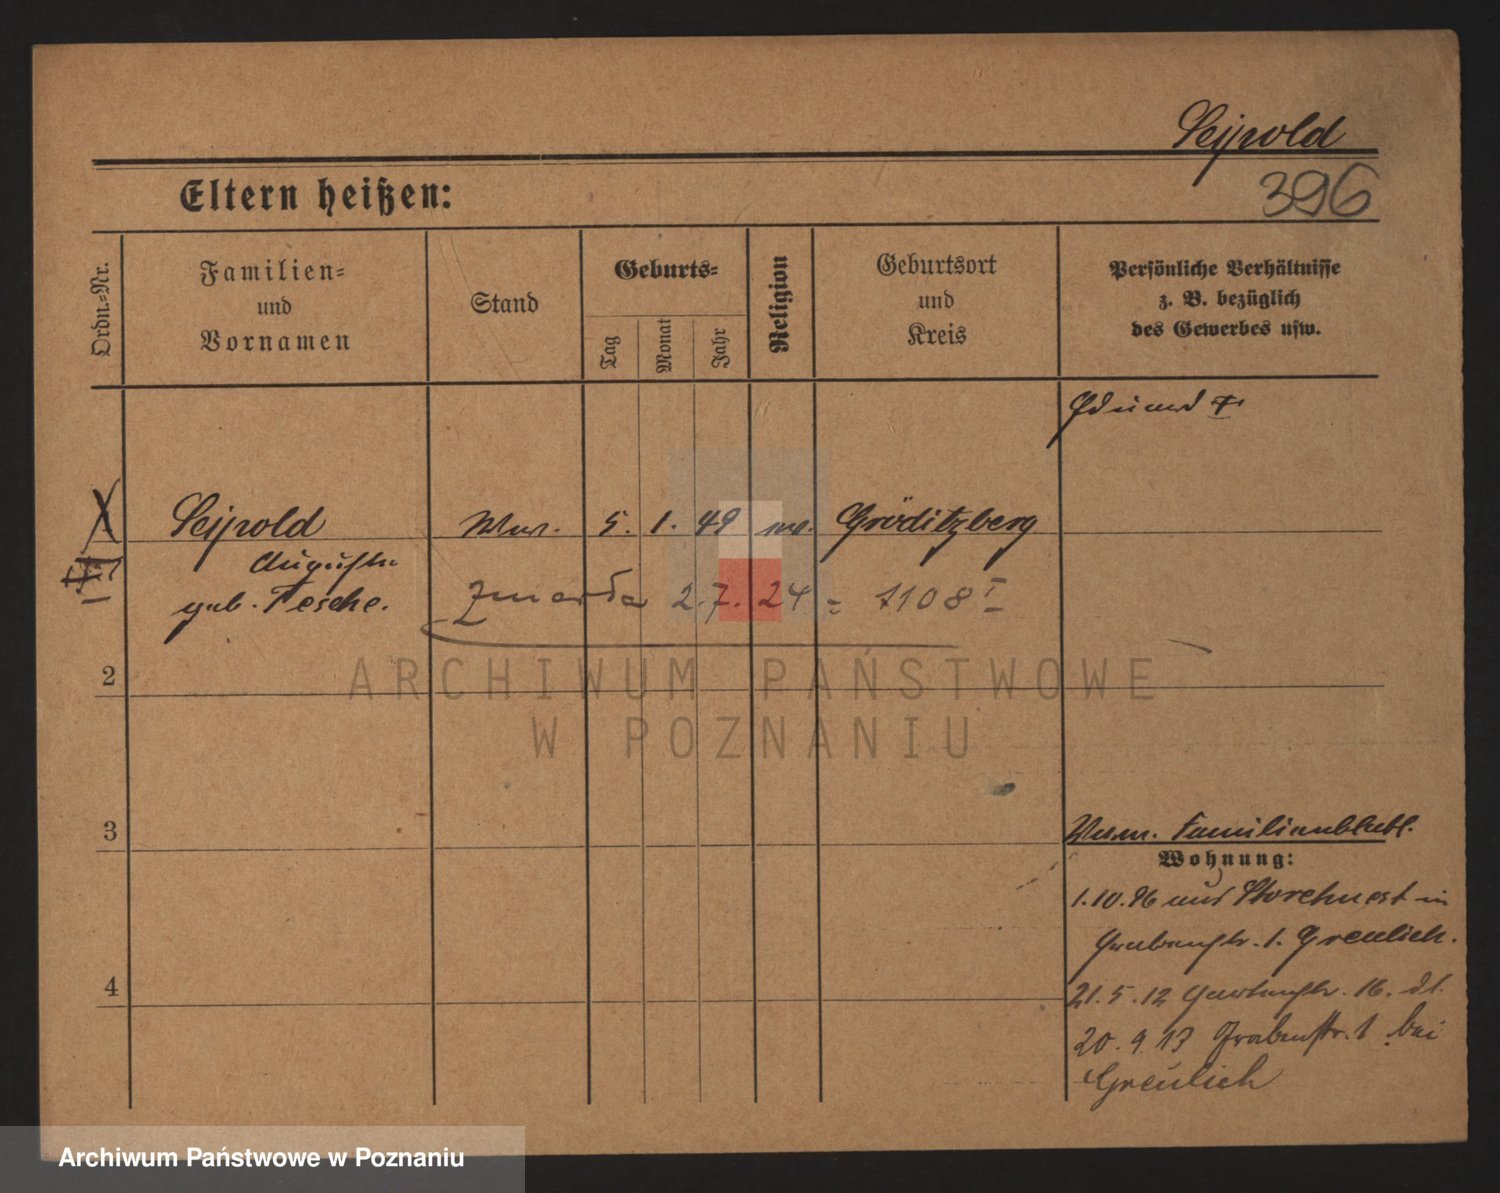 Seipold
396
Eltern heißen:
Ordn.-Nr.
Familien-
und
Vornamen
Stand
Geburts-
Tag
Monat
Jahr
Religion
Geburtsort
und
Kreis
Persönliche Verhältnisse
z. B. bezüglich
des Gewerbes usw.
Eduard †
Seipold Ww. 5. 1. 49 ev. Gröditzberg
Auguste
geb. Tesche.
Zmarła 2.7.24 = 1108 I
2
3
4
Verm. Familienblatt.
Wohnung:
1.10.96 aus Storchnest in
Grabenstr. 1. Greulich.
21.5.12 Gartenstr. 16. dt.
20.9.13 Grabenstr. 1 bei
Greulich
ARCHIWUM PAŃSTWOWE
W POZNANIU
Archiwum Państwowe w Poznaniu